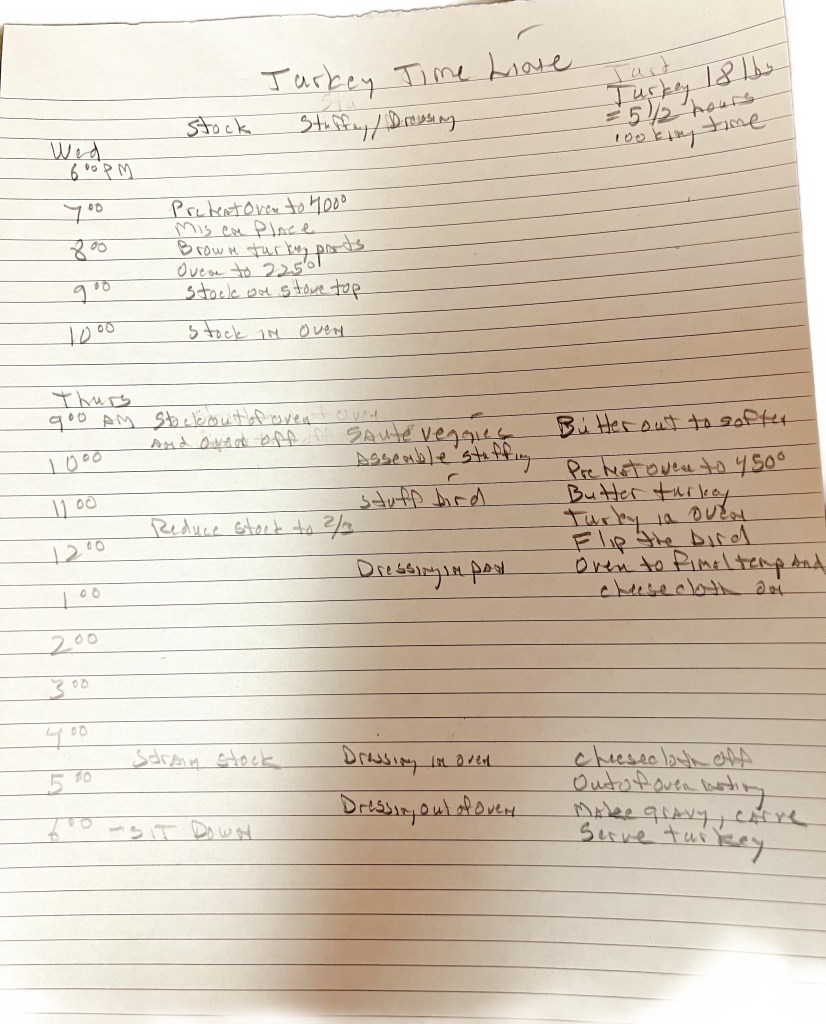 Turkey Time Line
Turkey 18 lbs
= 5 1/2 hours
cooking time
Stock Stuffing/Dressing
Wed
6:00 PM
7:00 Preheat Oven to 400°
Mis en Place
8:00 Brown turkey parts
Oven to 225°
9:00 Stock on stove top
10:00 Stock in oven
Thurs
9:00 AM Stock out of oven Sauté veggies Butter out to soften
And oven off
10:00 Assemble stuffing Preheat oven to 450°
11:00 Stuff bird Butter turkey
Turkey in oven
Reduce stock to 2/3 Flip the bird
12:00 Dressing in pan Oven to final temp and
1:00 cheesecloth on
2:00
3:00
4:00
Strain stock Dressing in oven Cheesecloth off
5:00 Out of oven
Dressing out of oven Make gravy, carve
6:00 - SIT DOWN Serve turkey